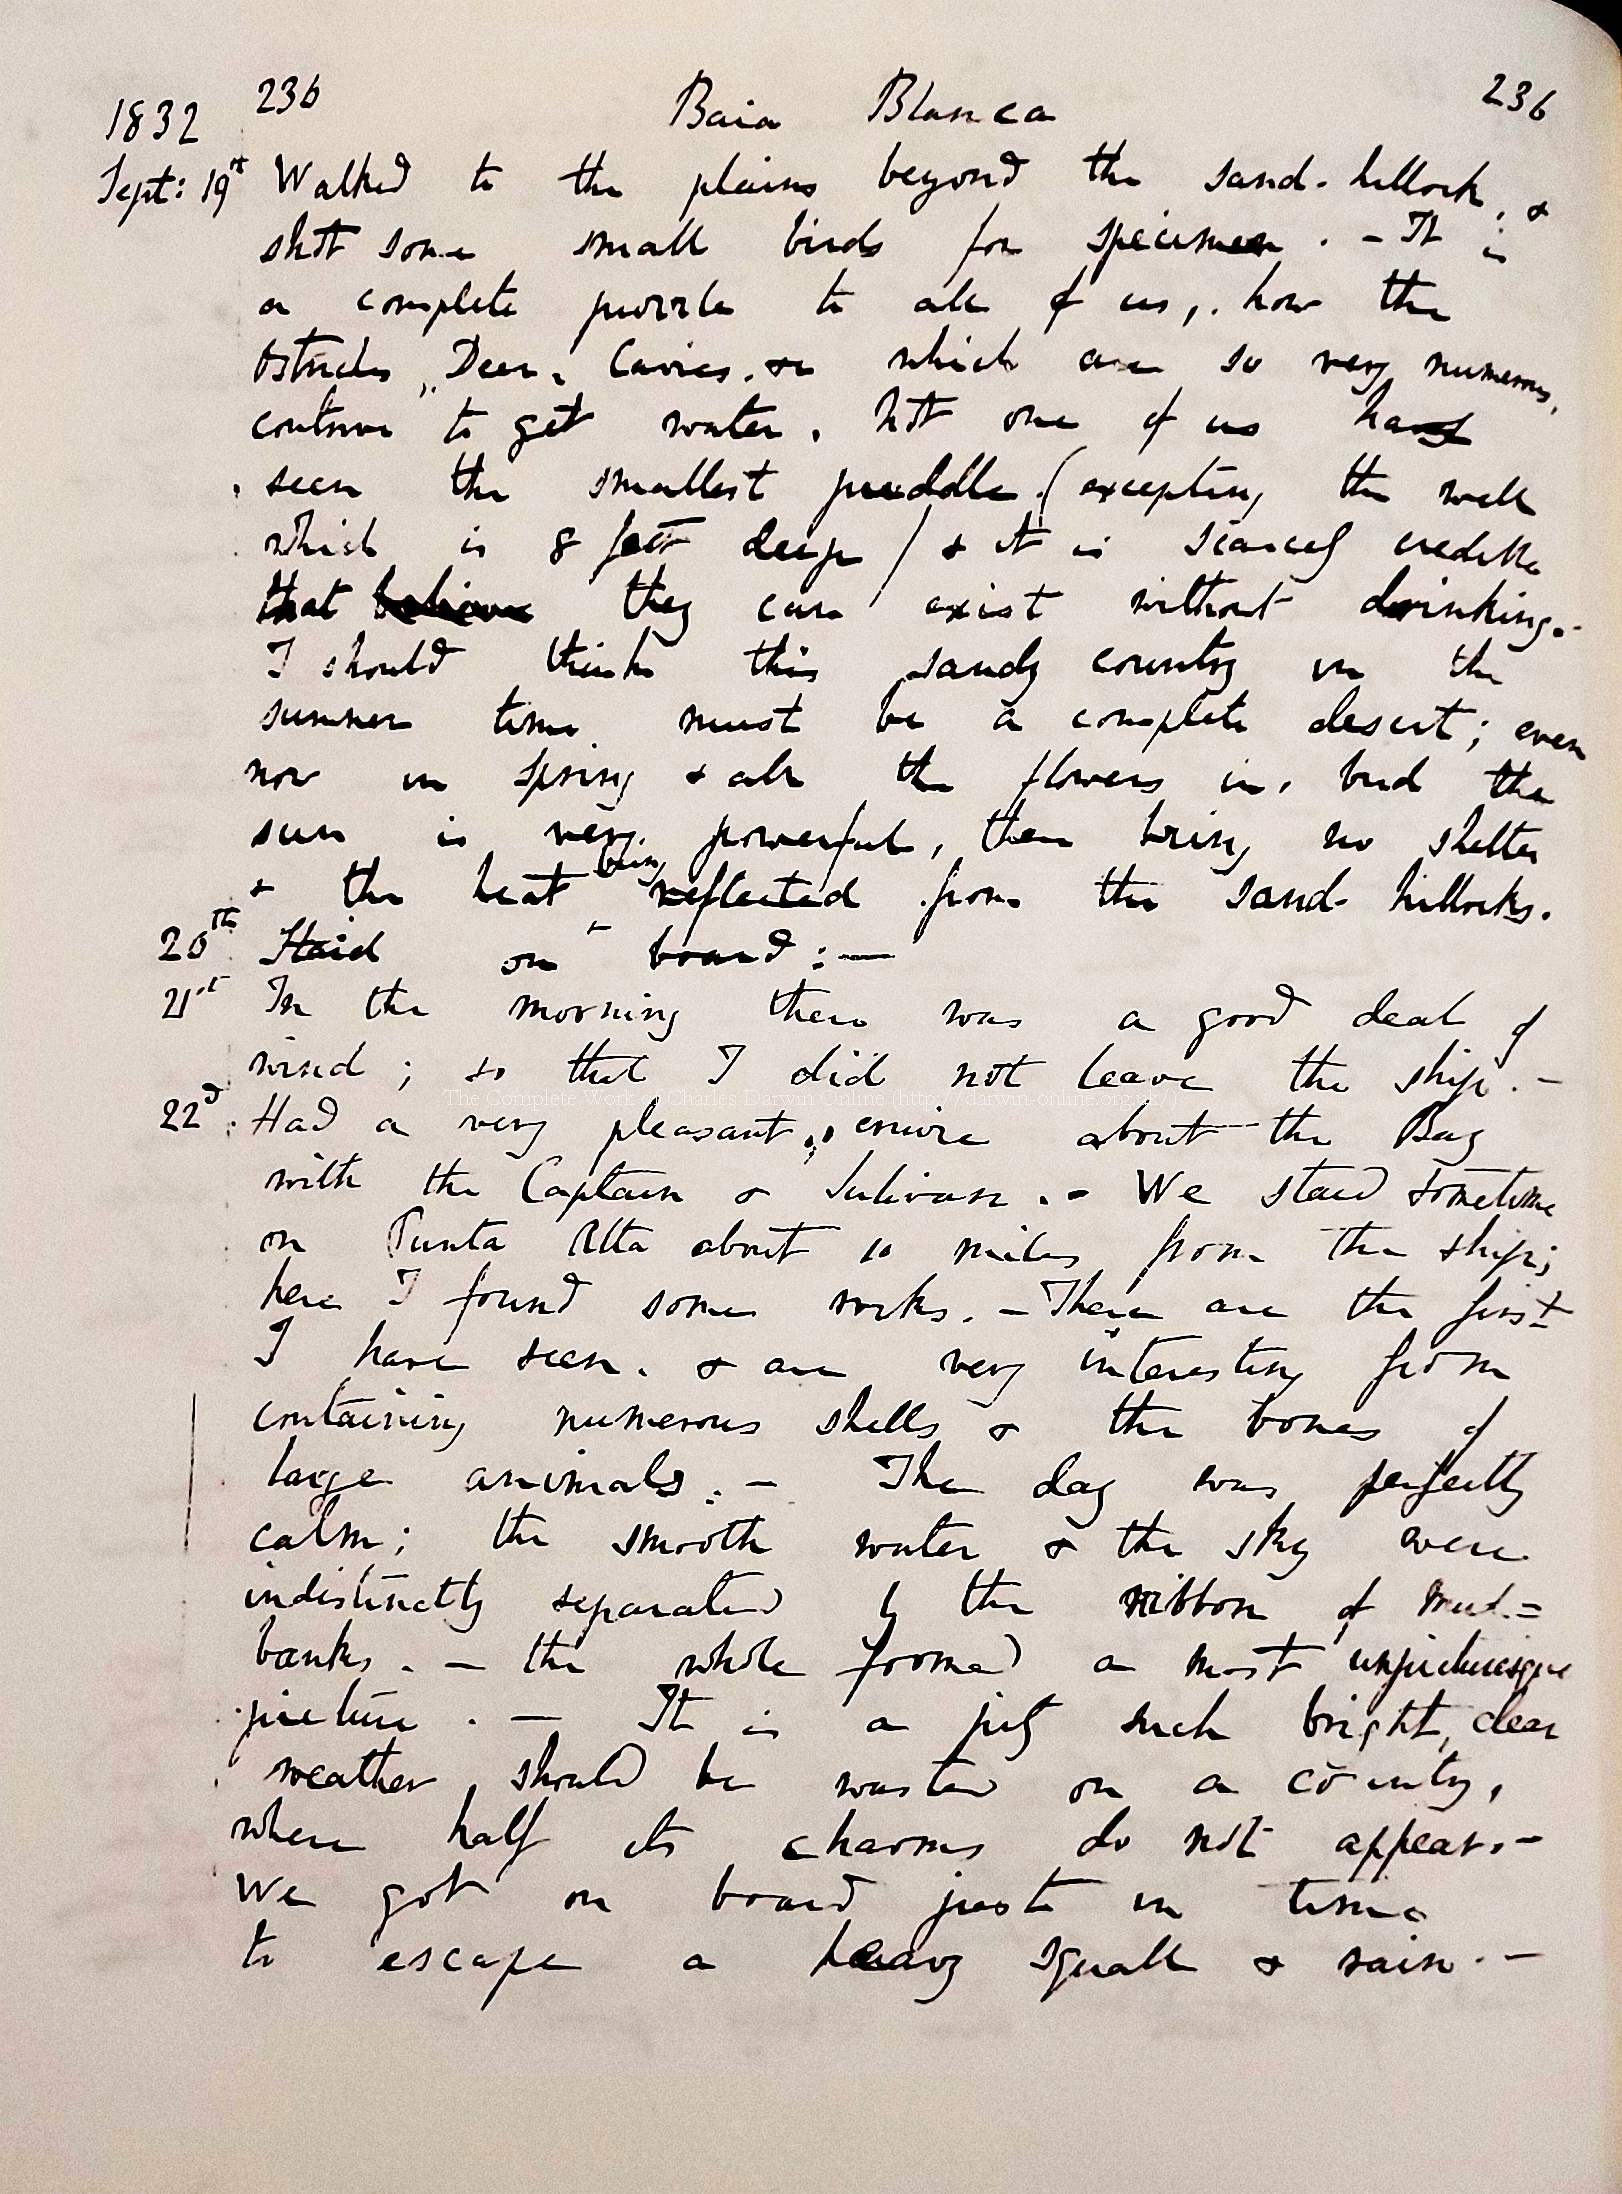 236 Baia Blanca 236
1832
Sept: 19th Walked to the plains beyond the sand-hillock, &
shot some small birds for specimen. - It is
a complete puzzle to all of us, how the
Ostriches, Deer, Cavies, &c which are so very numerous,
contrive to get water. Not one of us has
seen the smallest puddle (excepting the well
which is 8 feet deep) & it is scarcely credible
that believe they can exist without drinking. -
I should think this sandy country in the
summer time must be a complete desert; even
now in Spring & all the flowers in bud the
sun is very powerful, there being no shelter
& the heat being reflected from the sand-hillocks.
20th Staid on board: —
21st In the morning there was a good deal of
wind; so that I did not leave the ship. -
The Complete Work of Charles Darwin Online (http://darwin-online.org.uk/)
22d. Had a very pleasant cruize about the Bay
with the Captain & Sulivan. - We staid sometime
on Punta Alta about 10 miles from the ship;
here I found some rocks. - These are the first
I have seen, & are very interesting from
containing numerous shells & the bones of
large animals. - The day was perfectly
calm; the smooth water & the sky were
indistinctly separated by the ribbon of mud=
banks. - the whole formed a most unpicturesque
picture. — It is a pity such bright, clear
weather should be wasted on a country,
where half its charms do not appear. -
We got on board just in time
to escape a heavy squall & rain. -